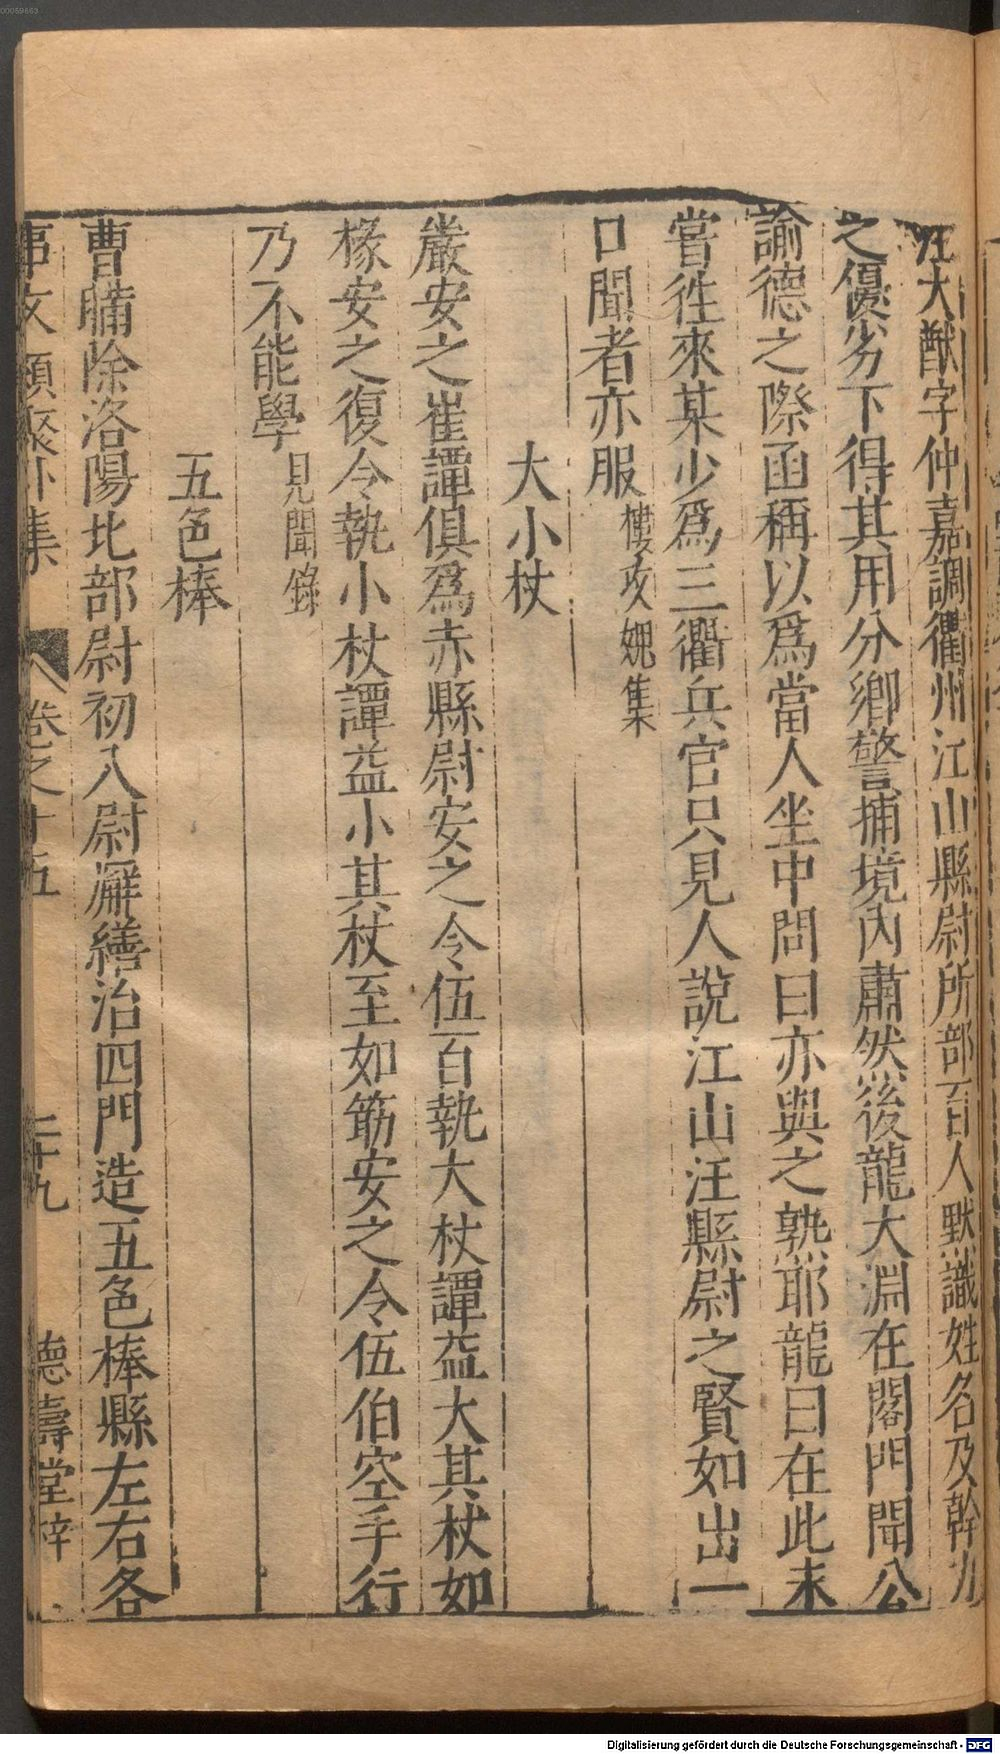 汪大猷字仲嘉調衢州江山縣尉所部百人默識姓名及幹力
之優劣下得其用分鄉警捕境內肅然後龍大淵在閣門聞公
諭德之際函稱以爲當人坐中問曰亦與之熟耶龍曰在此未
嘗徃來某少爲三衢兵官只見人說江山汪縣尉之賢如出一
口聞者亦服 樓攻媿集
大小杖
嚴安之崔譚俱爲赤縣尉安之令伍百執大杖譚益大其杖如
椽安之復令執小杖譚益小其杖至如筯安之令伍伯空手行
乃不能學 見聞錄
五色棒
曹瞞除洛陽北部尉初入尉廨繕治四門造五色棒縣左右各
事文類聚外集 卷之十五 二十九 德壽堂梓
00059663
Digitalisierung gefördert durch die Deutsche Forschungsgemeinschaft - DFG